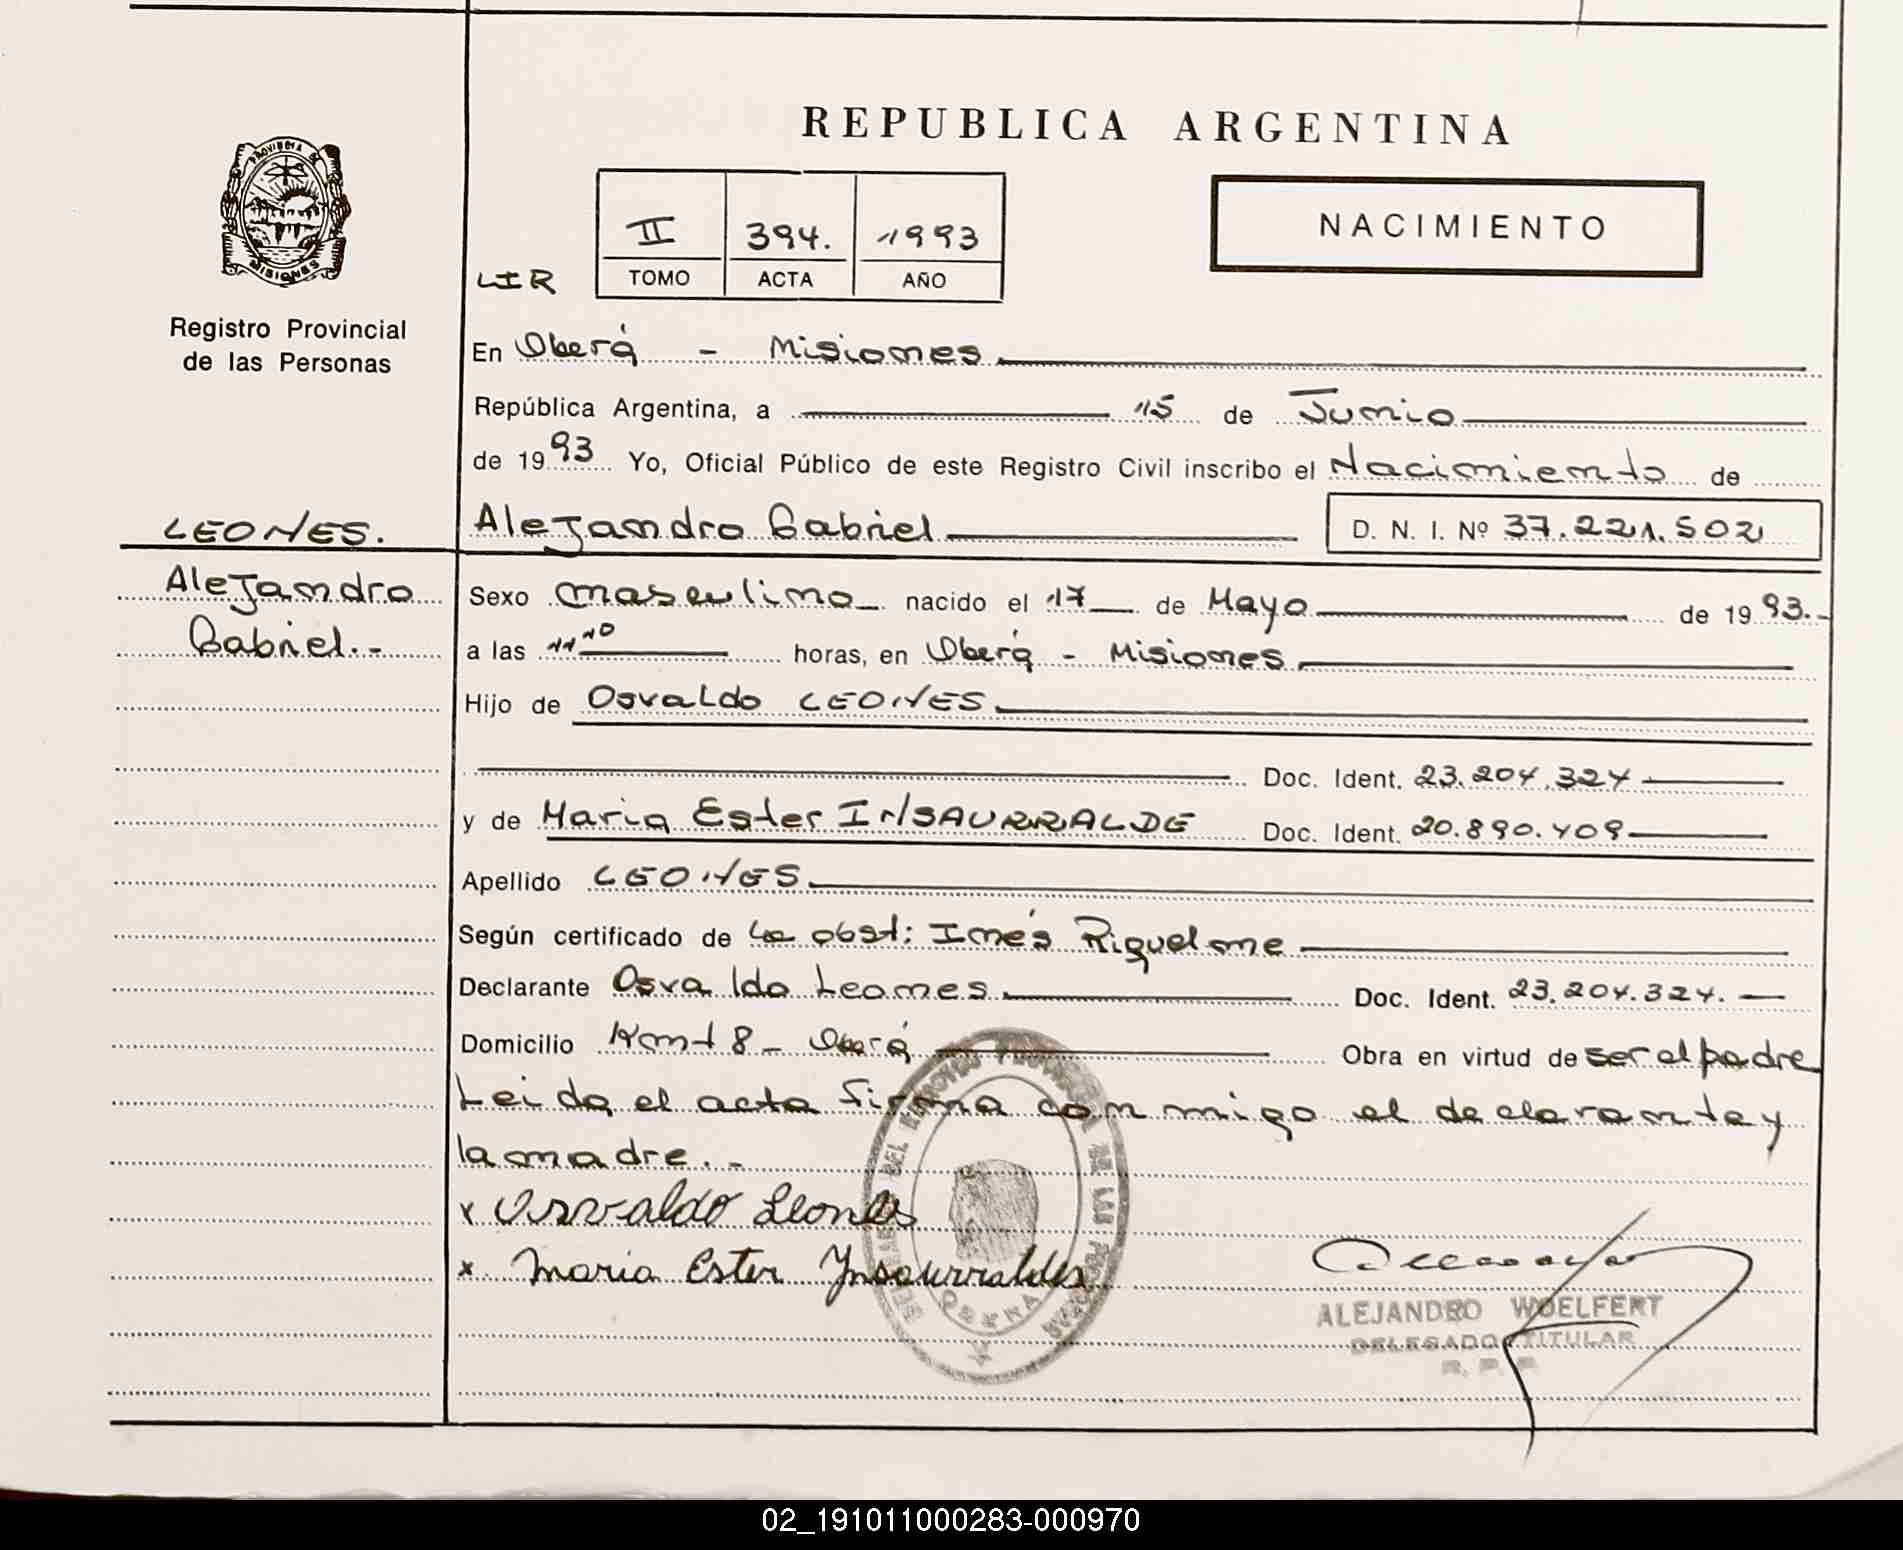 REPUBLICA ARGENTINA
PROVINCIA DE
MISIONES
Registro Provincial
de las Personas
NACIMIENTO
II 394. 1993
TOMO ACTA AÑO
LIR
En Oberá - Misiones
República Argentina, a 15 de Junio
de 1993 Yo, Oficial Público de este Registro Civil inscribo el Nacimiento de
LEONES.
Alejandro Gabriel D. N. I. Nº 37.221.502
Alejandro
Gabriel.-
Sexo masculino nacido el 17 de Mayo de 1993.-
a las 11 10 horas, en Oberá - Misiones
Hijo de Osvaldo LEONES
Doc. Ident. 23.204.324
y de Maria Ester INSAURRALDE Doc. Ident. 20.890.409
Apellido LEONES
Según certificado de La obst: Inés Riquelme
Declarante Osvaldo Leones Doc. Ident. 23.204.324.
Domicilio Km 8 - Oberá Obra en virtud de ser el padre
Leida el acta firma conmigo el declarante y
la madre.-
x Osvaldo Leones
x Maria Ester Ynsaurralde
ALEJANDRO WOELFERT
DELEGADO TITULAR
R. P. P.
02_191011000283-000970